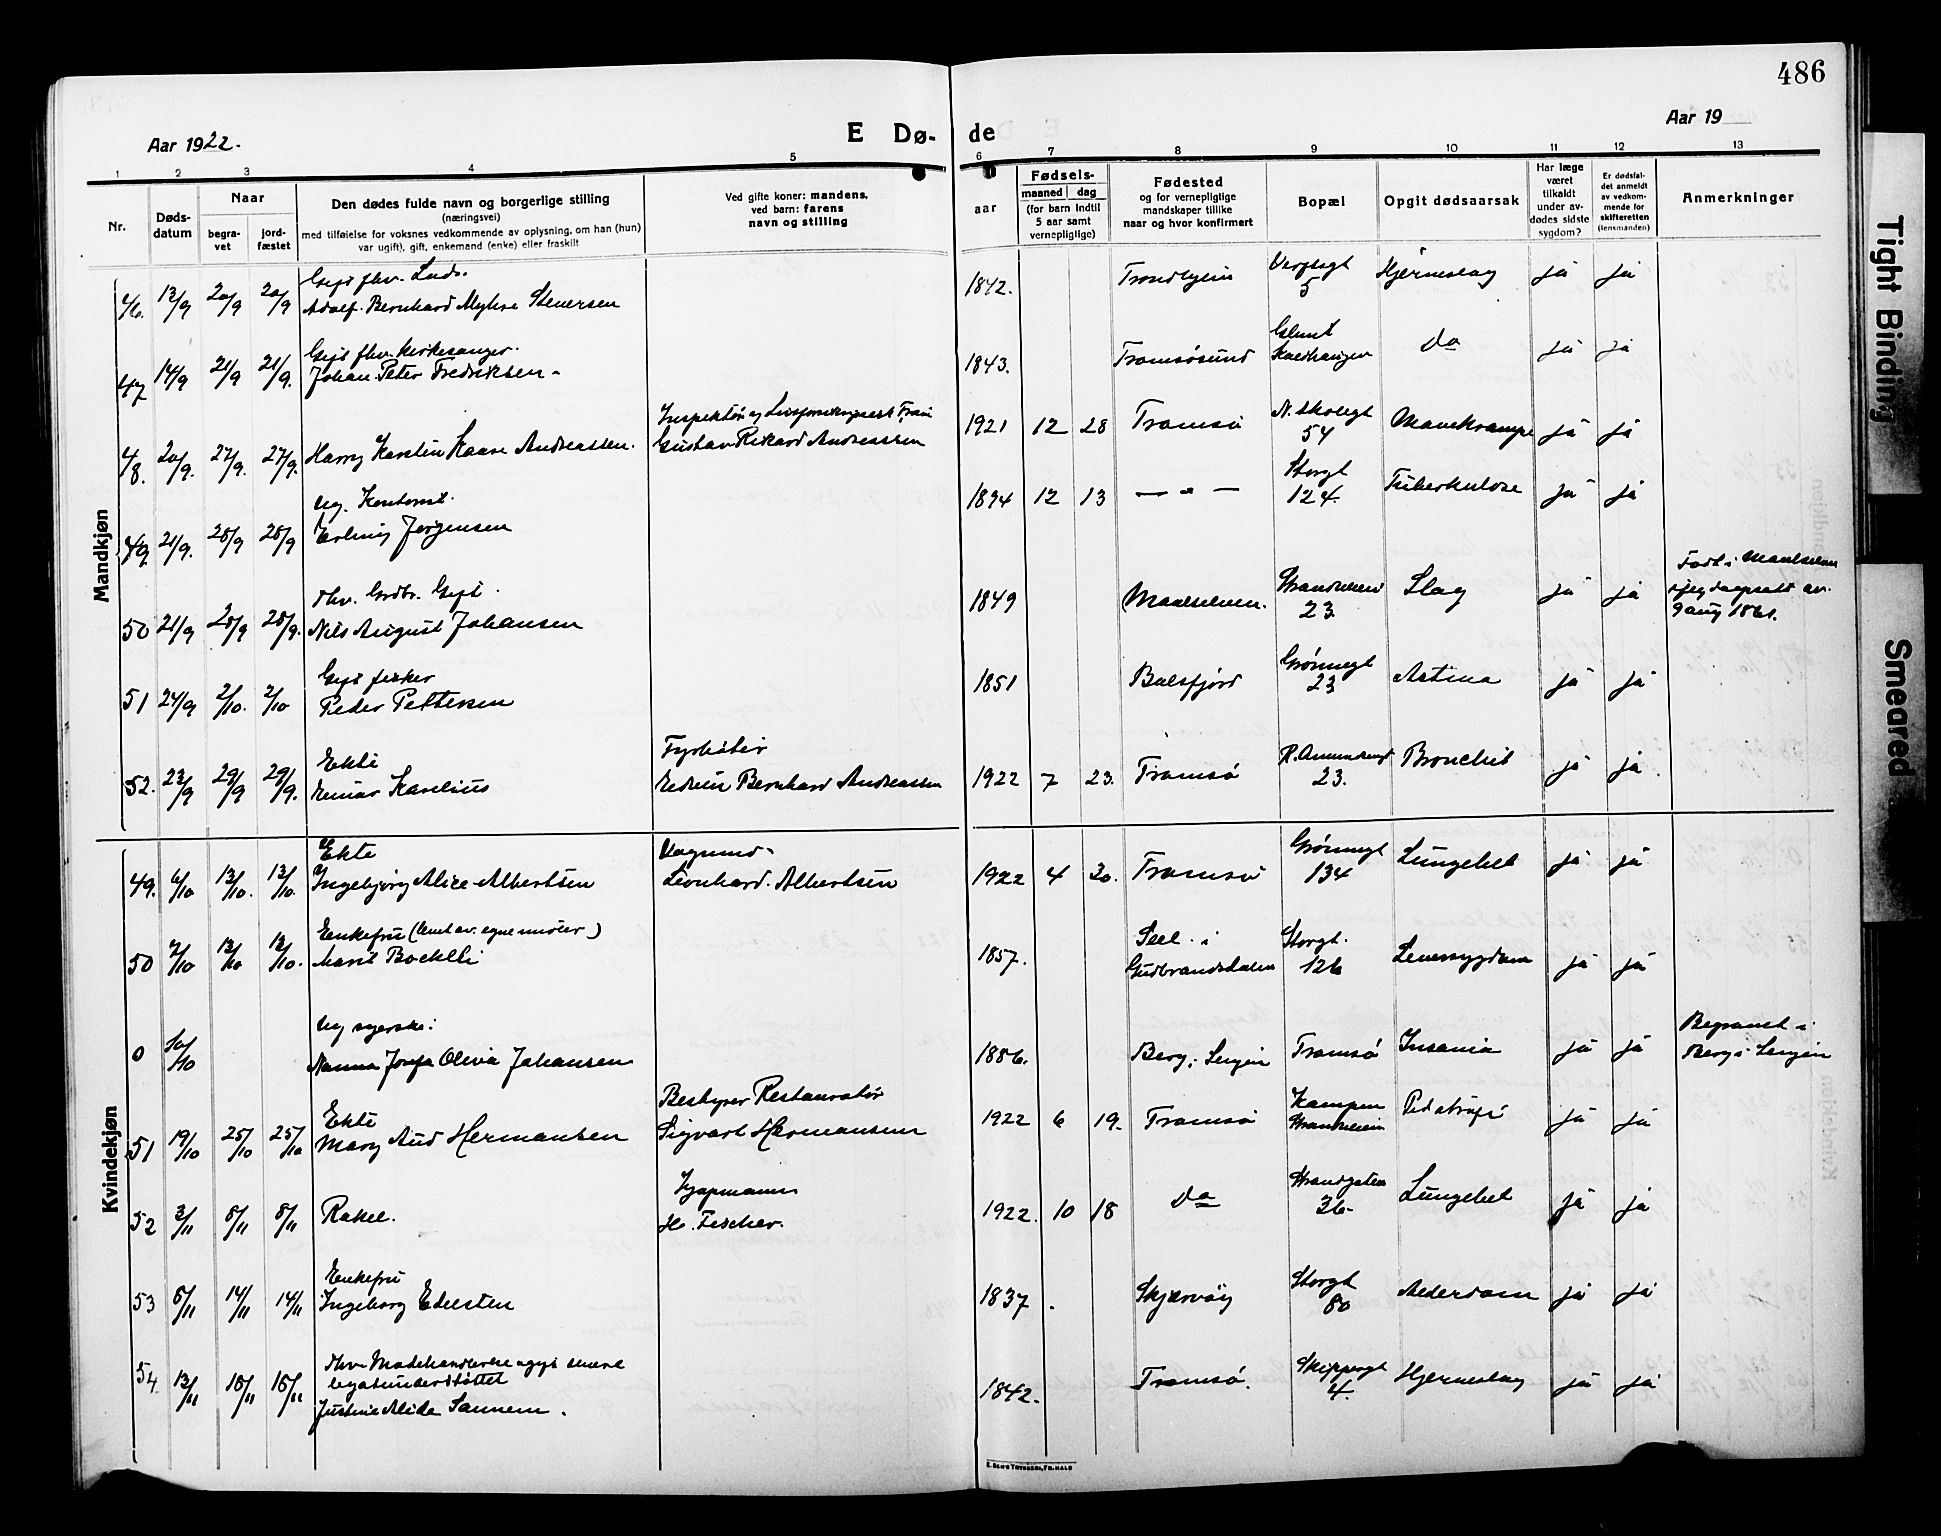 486
Aar 1922.
E Dø-
de
Aar 19
1 2 3 4 5 6 7 8 9 10 11 12 13
Nr.
Døds-
datum
Naar
begra-
vet
jord-
fæstet
Den dødes fulde navn og borgerlige stilling
(næringsvei)
med tilføielse for voksnes vedkommende av oplysning, om han (hun)
var ugift), gift, enkemand (enke) eller fraskilt
Ved gifte koner: mandens,
ved barn: farens
navn og stilling
aar
Fødsels-
maaned dag
(for barn indtil
5 aar samt
vernepligtige)
Fødested
og for vernepligtige
mandskaper tillike
naar og hvor konfirmert
Bopæl
Opgit dødsaarsak
Har læge
været
tilkaldt
under av-
dødes sidste
sygdom?
Er dødsfal-
det anmeldt
av vedkom-
mende for
skifteretten
(lensmanden)
Anmerkninger
Mandkjøn
Gift fhv.
46. 13/9 20/9 20/9 Adolf Bernhard Myhre Stenersen 1842. Trondhjem 5 Hjerneslag ja ja
Gift fhv. kirkesanger.
47 14/9 21/9 21/9. Johan Peter Fredriksen 1843. Tromsøsund do ja ja
48. 20/9. 27/9. 27/9. Harry Karsten Kaare Andreassen. Gustav Rikard Andreassen 1921 12 28 Tromsø N. Skolegt 54 Mavekrampe ja ja
Ug. Kontorist.
49 21/9. 28/9 28/9 Erling Jørgensen 1894 12 13 — " — Storgt 124. Tuberkulose ja ja
fhv. Grdbr. Gift.
50 21/9 28/9 28/9. Nils August Johansen 1849 Maalselven. Strandveien 23. Slag ja ja Født i Maalselven
9 aug 1861.
Gift fisker
51 24/9 2/10. 2/10 Peder Pettersen 1851 Balsfjord Grønnegt 23 Astma ja ja
Ekte Fyrbøter
52. 23/9 29/9 29/9. Einar Karelius Edvin Bernhard Andreassen 1922 7 23. Tromsø R. Amundsensgt 23. Bronchit ja ja
Kvindekjøn
Ekte Vognmd.
49. 6/10 13/10. 13/10. Ingebjørg Alice Albertsen Leonhard Albertsen 1922 4 30. Tromsø Grønnegt 134 Lungebet ja ja
Enkefru (levet av egne midler)
50 7/10 13/10 13/10. Marit Boeklli 1857. Sell i Gudbrandsdalen Storgt. 126 Leversygdom ja ja
Ug syerske:
0 10/10 Nanna Josefa Olivia Johansen 1886. Berg i Senjen Tromsø Insania ja ja Begravet i
Berg i Senjen
Ekte Bestyrer Restauratør
51 19/10 25/10 25/10 Mary Aud Hermansen Sigvart Hermansen 1922 6 19. Tromsø Kampen Strandveien Pedatrofi ja ja
52 3/11 8/11 8/11 Rakel. Kjøpmann H. Fischer. 1922. 10 18 do Strandgaten 36. Lungebet ja ja
Enkefru
53 8/11 14/11 14/11 Ingeborg Edvisten 1837. Skjærvøy Storgt 80 Alderdom ja ja
fhv Modehandlerske ugift senere
legatunderstøttet
54. 13/11 18/11 18/11 Justine Alida Sannem. 1842. Tromsø. Skippergt 4. Hjerneslag ja ja
Tight Binding
Smeared